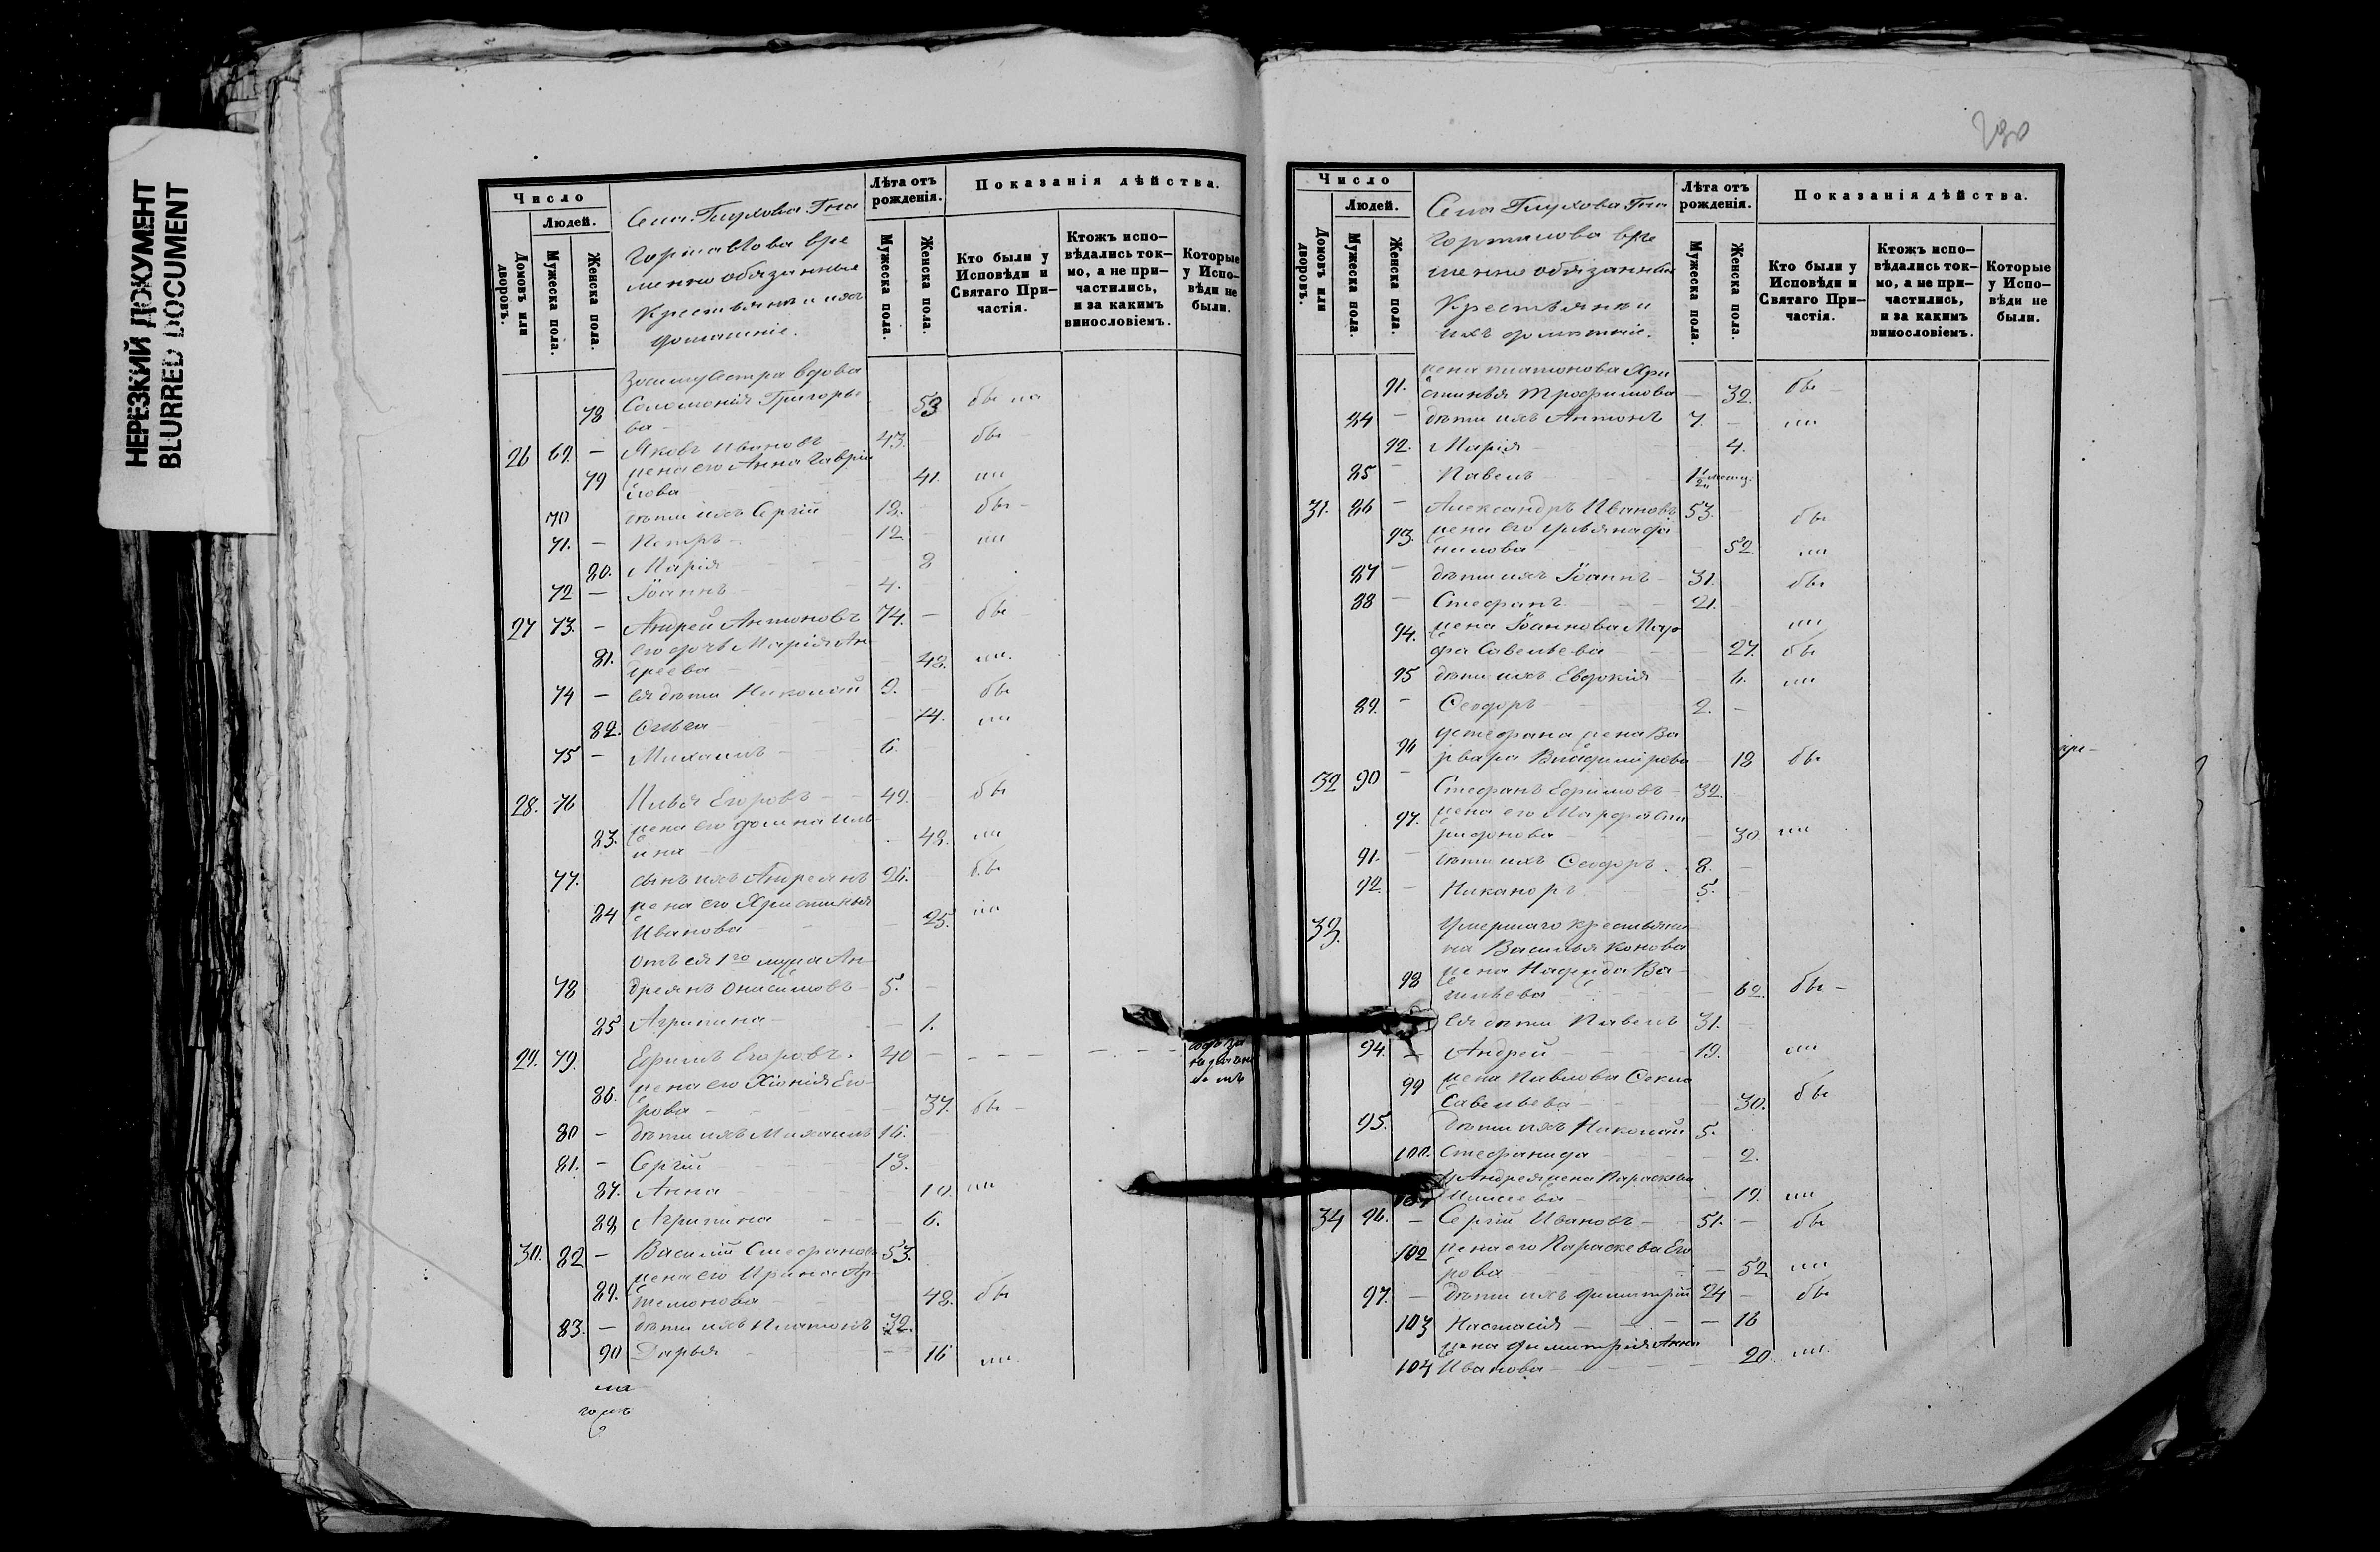 НЕРЕЗКИЙ ДОКУМЕНТ
BLURRED DOCUMENT
Число
Людей.
Домовъ или дворовъ.
Мужеска пола.
Женска пола.
Села Глухова Гна
Горталова вре
менно обязанные
Крестьяне и ихъ
домашніе.
Лѣта отъ рожденія.
Мужеска пола.
Женска пола.
Показанія дѣйства.
Кто были у Исповѣди и Святаго Причастія.
Ктожъ исповѣдались токмо, а не причастились, и за какимъ винословіемъ.
Которые у Исповѣди не были.
вдова
78 Соломонія Григорье 53 бы ла
ва
26 69. — Яковъ Ивановъ 43. бы
79 жена его Анна Гаврі 41. ла
илова
70 дѣти ихъ Сергій 18. бы
71. — Петръ 12 ла
80. Марія 8
72 — Іоаннъ 4.
27 73. — Андрей Антоновъ 74. — бы
81. его дочь Марія Ан
дреева 48. ла.
74 — ея дѣти Николай 9. бы
82. Ольга 14. ла
75 — Михаилъ 6.
28. 76 Илья Егоровъ 49. бы
83. жена его Домна Иль
ина 48. ла
77. сынъ ихъ Андреянъ 26. бы
84 жена его Христинья
Иванова 25. ла
Отъ ея 1го мужа Ан
78 дреянъ Онисимовъ 5.
85 Агрипина 1.
29. 79. Ефимъ Егоровъ. 40
86. жена его Хіонія Его
рова 37. бы
80 — дѣти ихъ Михаилъ 16.
81. — Сергій 13.
87. Анна 10. ла
88 Агрипина 6.
30. 82 — Василій Стефановъ 53.
89. жена его Ирина Ар
темонова 48. бы
83. — дѣти ихъ Платонъ 32.
90 Дарья 16 ла.
290
Число
Людей.
Домовъ или дворовъ.
Мужеска пола.
Женска пола.
Села Глухова Гна
Горталова вре
менно обязанные
Крестьяне и
ихъ домашніе.
Лѣта отъ рожденія.
Мужеска пола.
Женска пола.
Показанія дѣйства.
Кто были у Исповѣди и Святаго Причастія.
Ктожъ исповѣдались токмо, а не причастились, и за какимъ винословіемъ.
Которые у Исповѣди не были.
жена Платонова Хри
91. стинья Трофимова 32. бы
84 — дѣти ихъ Антонъ 7. ла
92. Марія 4.
85 — Павелъ 1½
31. 86 — Александръ Ивановъ 53. бы
93. жена его Ульяна Да
нилова 52. ла
87 — дѣти ихъ Іоаннъ 31. бы
88 — Стефанъ 21.
94. жена Іоаннова Мар ла
фа Савельева 27. бы
95 дѣти ихъ Евдокія 6. ла
89. — Ѳеодоръ 2.
96 у Стефана жена Ва
рвара Владимірова 18 бы
32 90 — Стефанъ Ефимовъ 32.
97. жена его Марфа Спи
ридонова 30 ла
91. — дѣти ихъ Ѳеодоръ 8.
92. — Никаноръ 5.
33. Умершаго крестьяни
на Василья Конова
98 жена Надежда Ва
сильева 62. бы
ея дѣти Павелъ 31.
94. — Андрей 19. ла
99 жена Павлова Ѳекла
Савельева 30. бы
95. дѣти ихъ Николай 5.
100. Стефанида 2.
у Андрея жена Параскева
101 19. ла
34 96. — Сергій Ивановъ 51. бы
102 жена его Параскева Его
рова 52 ла
97. — дѣти ихъ Димитрій 24 бы
103 Настасія 16
жена Димитрія Анна
104 Иванова 20. ла.